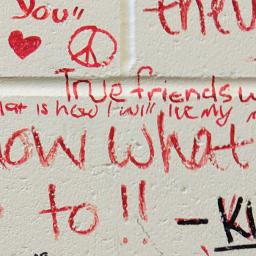 you" they
True friends w
that is how I will live my
how what
to!! - KI